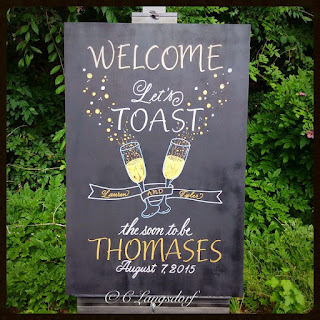 WELCOME
Let's
TOAST
Lauren AND Kyles
the soon to be
THOMASES
August 7, 2015
© C Langsdorf